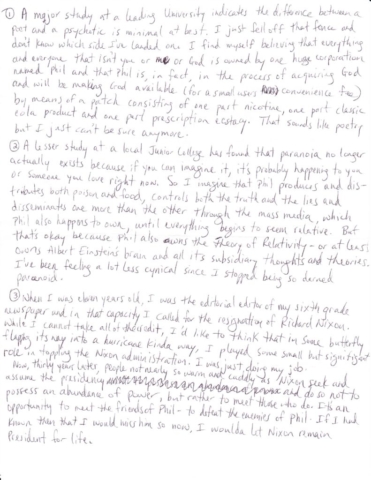 ① A major study at a leading University indicates the difference between a
poet and a psychotic is minimal at best. I just fell off that fence and
don't know which side I've landed on. I find myself believing that everything
and everyone that isn't you or me or God is owned by one huge corporation
named Phil and that Phil is, in fact, in the process of acquiring God
and will be making God available (for a small users convenience fee)
by means of a patch consisting of one part nicotine, one part classic
cola product and one part prescription ecstasy. That sounds like poetry
but I just can't be sure anymore.
② A lesser study at a local Junior College has found that paranoia no longer
actually exists because if you can imagine it, it's probably happening to you
or someone you love right now. So I imagine that Phil produces and dis-
tributes both poison and food, controls both the truth and the lies and
disseminates one more than the other through the mass media, which
Phil also happens to own, until everything begins to seem relative. But
thats okay because Phil also owns the Theory of Relativity - or at least
owns Albert Einstein's brain and all its subsidiary thoughts and theories.
I've been feeling a lot less cynical since I stopped being so darned
paranoid.
③ When I was eleven years old, I was the editorial editor of my sixth grade
newspaper and in that capacity I called for the resignation of Richard Nixon.
While I cannot take all the credit, I'd like to think that in some butterfly
flaping its way into a hurricane kinda way, I played some small but signifigant
role in toppling the Nixon administration. I was just doing my job.
Now, thirty years later, people not nearly so warm and cuddly as Nixon seek and
assume the presidency and do so not to
possess an abundance of power, but rather to meet those who do. Its an
opportunity to meet the friends of Phil - to defeat the enemies of Phil. If I had
known then that I would miss him so now, I woulda let Nixon remain
President for life.